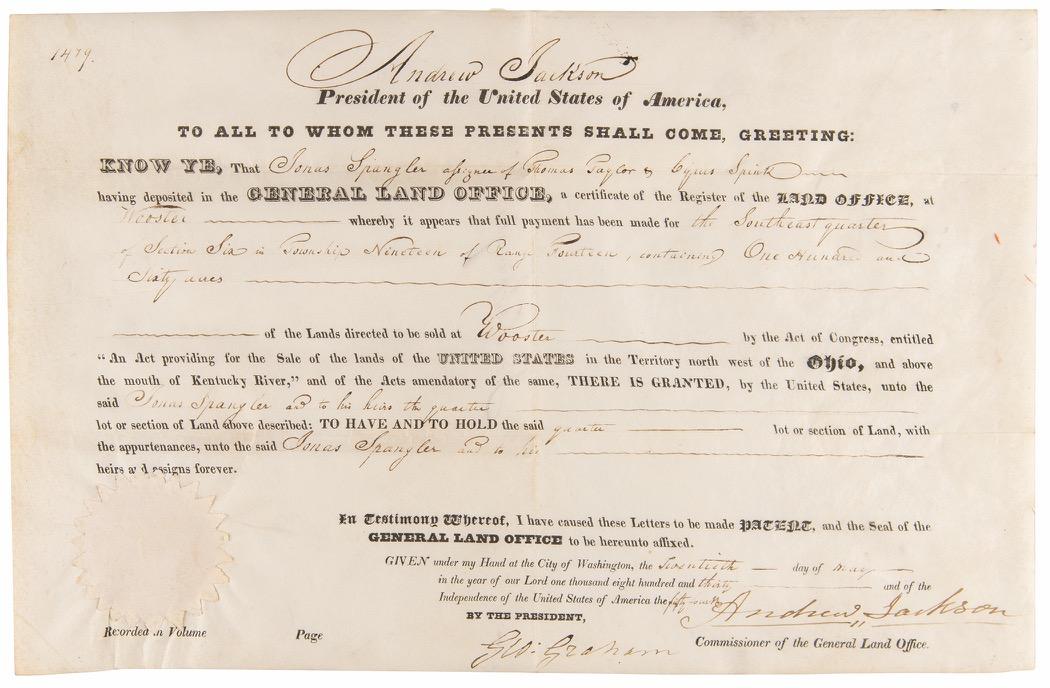 1479.
Andrew Jackson
President of the United States of America,
TO ALL TO WHOM THESE PRESENTS SHALL COME, GREETING:
KNOW YE, That Jonas Spangler assignee of Thomas Taylor & Cyrus Spink
having deposited in the GENERAL LAND OFFICE, a certificate of the Register of the LAND OFFICE, at
Wooster whereby it appears that full payment has been made for the Southeast quarter
of Section Six in Township Nineteen of Range Fourteen, containing One Hundred and
Sixty acres
of the Lands directed to be sold at Wooster by the Act of Congress, entitled
"An Act providing for the Sale of the lands of the UNITED STATES in the Territory north west of the Ohio, and above
the mouth of Kentucky River," and of the Acts amendatory of the same, THERE IS GRANTED, by the United States, unto the
said Jonas Spangler and to his heirs the quarter
lot or section of Land above described: TO HAVE AND TO HOLD the said quarter lot or section of Land, with
the appurtenances, unto the said Jonas Spangler and to his
heirs and assigns forever.
In Testimony Whereof, I have caused these Letters to be made PATENT, and the Seal of the
GENERAL LAND OFFICE to be hereunto affixed.
GIVEN under my Hand at the City of Washington, the twentieth day of may
in the year of our Lord one thousand eight hundred and thirty and of the
Independence of the United States of America the fifty fourth Andrew Jackson
BY THE PRESIDENT,
Geo: Graham Commissioner of the General Land Office.
Recorded in Volume Page